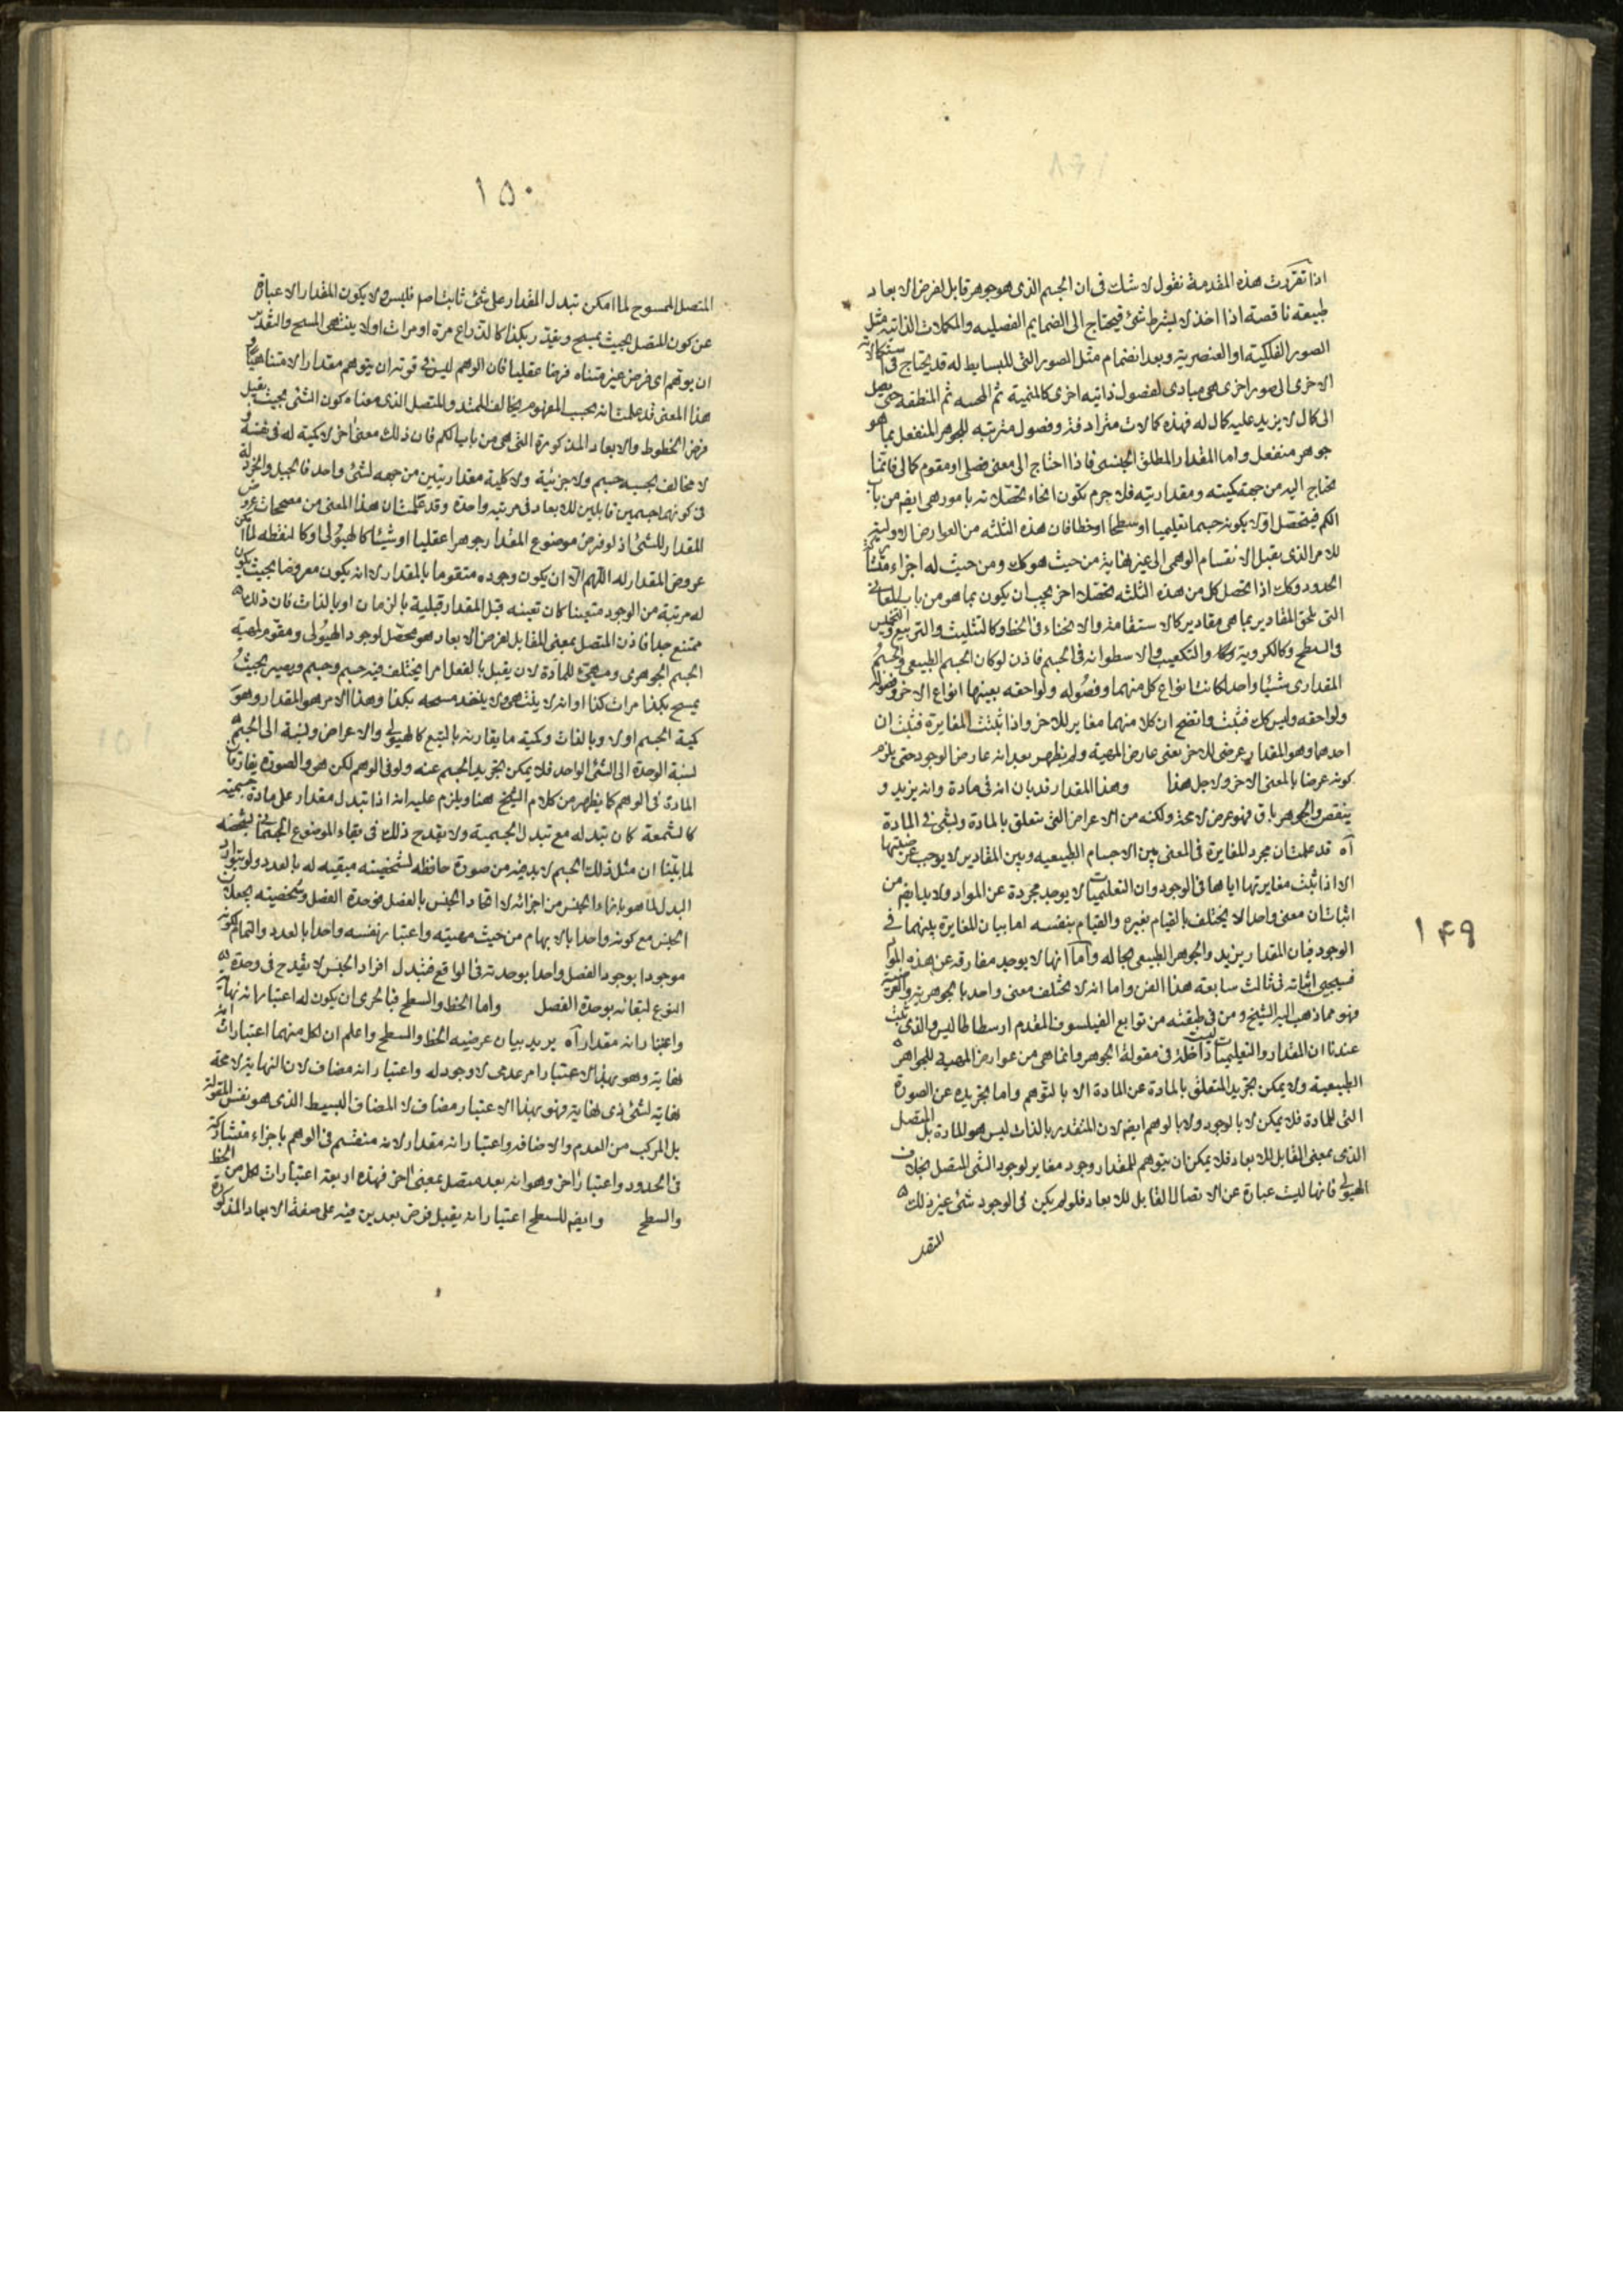 ١۴٩
اذا تقررت هذه المقدمة نقول لا شك فى ان الجسم الذى هو جوهر قابل لفرض الابعاد
طبيعة ناقصة اذا اخذ لا بشرط شئ فيحتاج الى الضمايم الفصليه والمكملات الذاتيه مثل
الصور الفلكيته او العنصرية وبعد انضمام مثل الصور التى للبسايط له قد يحتاج فى استكمالاته
الاخرى الى صور اخرى هى مبادى لفصول ذاتيه اخرى كالمنمية ثم الحسه ثم المنطقه حتى يصل
الى كمال لا يزيد عليه كمال له فهذه كمالات مترادفة وفصول مترتبه للجوهر المنفعل بما هو
جوهر منفعل واما المقدار المطلق الجنسى فاذا احتاج الى معنى فصلى او مقوم كمالى فانما
يحتاج اليه من جهة كميته ومقداريته فلا جرم يكون انحاء تحصلاته بامور هى ايضا من باب
الكم فيتحصل اولا بكونه جسما تعليميا او سطحا او خطا فان هذه الثلثه من العوارض الاولية
للامر الذى يقبل الانقسام الوهمى الى غير نهاية من حيث هو كك ومن حيث له اجزاء
الحدود وكك اذا تحصل كل من هذه الثلثه تحصلا اخر يجب ان يكون بما هو من باب المعانى
التى تلحق المقادير بما هى مقادير كالاستقامة والانحناء فى الخط وكالتثليث والتربيع والتخميس
فى السطح وكالكروية والتكعيب والاسطوانه فى الجسم فاذن لو كان الجسم الطبيعى والجسم
المقدارى شيئا واحدا لكانت انواع كل منهما وفصوله ولواحقه بعينها انواع الاخر وفصوله
ولواحقه وليس كك فثبت واتضح ان كلا منهما مغاير للاخر واذا ثبتت المغايرة فثبت ان
احدهما وهو المقدار عرضى للاخر بعنى عارض المهية ولم يظهر بعد انه عارض الوجود حتى يلزم
كونه عرضا بالمعنى الاخر ولاجل هذا وهذا المقدار قد بان انه فى مادة وانه يزيد و
ينقص والجوهر باق فهو عرض لا محة ولكنه من الاعراض التى تتعلق بالمادة وبشى فى المادة
آه قد علمت ان مجرد المغايرة فى المعنى بين الاجسام الطبيعيه وبين المقادير لا يوجب عرضيتها
الا اذا ثبت مغايرتها اياها فى الوجود وان التعليميات لا يوجد مجردة عن المواد ولا بد ايضا من
اثبات ان معنى واحدا لا يختلف بالقيام بغيره والقيام بنفسه اما بيان المغايرة بينهما فى
الوجود فبان المقدار يزيد والجوهر الطبيعى بحاله واما انها لا يوجد مفارقه عن هذه المواد
فسيجيى اثباته فى ثالث سابعة هذا الفن واما انه لا يختلف معنى واحد بالجوهرية والعرضية
فهو مما ذهب اليه الشيخ ومن فى طبقته من توابع الفيلسوف المقدم ارسطاطاليس والذى ثبت
عندنا ان المقدار والتعليميات ليست داخلة فى مقولة الجوهر وانما هى من عوارض المهية للجواهر
الطبيعية ولا يمكن تجريد المتعلق بالمادة عن المادة الا بالتوهم واما تجريده عن الصورة
التى للمادة فلا يمكن لا بالوجود ولا بالوهم ايضا لان المتقدر بالذات ليس هو المادة بل المتصل
الذى بمعنى القابل للابعاد فلا يمكن ان يتوهم للمقدار وجود مغاير لوجود الشى المتصل بخلاف
الهيولى فانها ليست عبارة عن الاتصال القابل للابعاد فلو لم يكن فى الوجود شئ غير ذلك
١۵٠
المتصل الممسوح لما امكن تبدل المقدار على شئ ثابت اصم فليس ولا يكون المقدار الا عبارة
عن كون المتصل بحيث يمسح ويقدر بكذا كالذراع مرة او مرات او لا ينتهى المسح والتقدير
ان يوهم اى فرض غير متناه فرضا عقليا فان الوهم ليس فى قوته ان يتوهم مقدارا لا متناهيا و
هذا المعنى قد علمت انه بحسب المفهوم يخالف الممتد والمتصل الذى معناه كون الشئ بحيث يقبل
فرض الخطوط والابعاد المذكورة التى هى من باب الكم فان ذلك معنى اخر لا كمية له فى نفسه و
لا يخالف بحسبه جسم ولا جزئية ولا كلية مقداريتين من جهه لشئ واحد فالجبل والخردلة
فى كونهما جسمين قابلين للابعاد فى مرتبه واحدة وقد علمت ان هذا المعنى من مصححات عروض
المقدار للشئ اذ لو فرض موضوع المقدار جوهرا عقليا او شيئا كالهيولى او كالنقطه لما امكن
عروض المقدار له اللهم الا ان يكون وجوده متقوما بالمقدار لا انه يكون معروضا بحيث يكون
له مرتبة من الوجود متعينا كان تعينه قبل المقدار قبلية بالزمان او بالذات فان ذلك
ممتنع جدا فاذن المتصل بمعنى القابل لفرض الابعاد هو محصل لوجود الهيولى ومقوم لمهية
الجسم الجوهرى ومهيئ للمادة لان يقبل بالفعل امرا يختلف فيه جسم وجسم ويصير بحيث
يمسح بكذا مرات كذا او انه لا ينتهى ولا ينفد مسحه بكذا وهذا الامر هو المقدار وهو
كمية الجسم اولا وبالذات وكمية ما يقارنه بالتبع كالهيولى والاعراض ونسبة الى الجسم
نسبة الوحدة الى الشئ الواحد فلا يمكن تجريد الجسم عنه ولو فى الوهم لكن هو والصورة يفارقان
المادة فى الوهم كما يظهر من كلام الشيخ ههنا ويلزم عليه انه اذا تبدل مقدار على مادة جسمية
كالشمعة كان تبدله مع تبدل الجسمية ولا يقدح ذلك فى بقاء الموضوع الجسمانى بشخصه
لما بينا ان مثل ذلك الجسم لا بد فيه من صورة حافظه لشخصيته مبقيه له بالعدد ولو بتوارد
البدل لما هو بازاء الجنس من اجزائه لاتحاد الجنس بالفصل فوحدة الفصل وشخصيته يجعلان
الجنس مع كونه واحدا بالابهام من حيث مهيته واعتبار نفسه واحدا بالعدد والتمام لكونه
موجودا بوجود الفصل واحدا بوحدته فى الواقع فتبدل افراد الجنس لا يقدح فى وحدة
النوع لبقائه بوحدة الفصل واما الخط والسطح فبالحرى ان يكون له اعتبار انه نهاية
واعتبار انه مقدار آه يريد بيان عرضيه الخط والسطح واعلم ان لكل منهما اعتبارات انه
نهاية وهو بهذا الاعتبار امر عدمى لا وجود له واعتبار انه مضاف لان النهاية لا محة
نهاية لشئ ذى نهاية فهو بهذا الاعتبار مضاف لا المضاف البسيط الذى هو نفس المقولة
بل المركب من العدم والاضافه واعتبار انه مقدار لانه منقسم فى الوهم باجزاء متشاركة
فى الحدود واعتبارا اخر وهو انه بعد متصل بمعنى اخر فهذه اربعة اعتبارات لكل من الخط
والسطح وايضا للسطح اعتبار انه يقبل فرض بعدين فيه على صفة الابعاد المذكورة